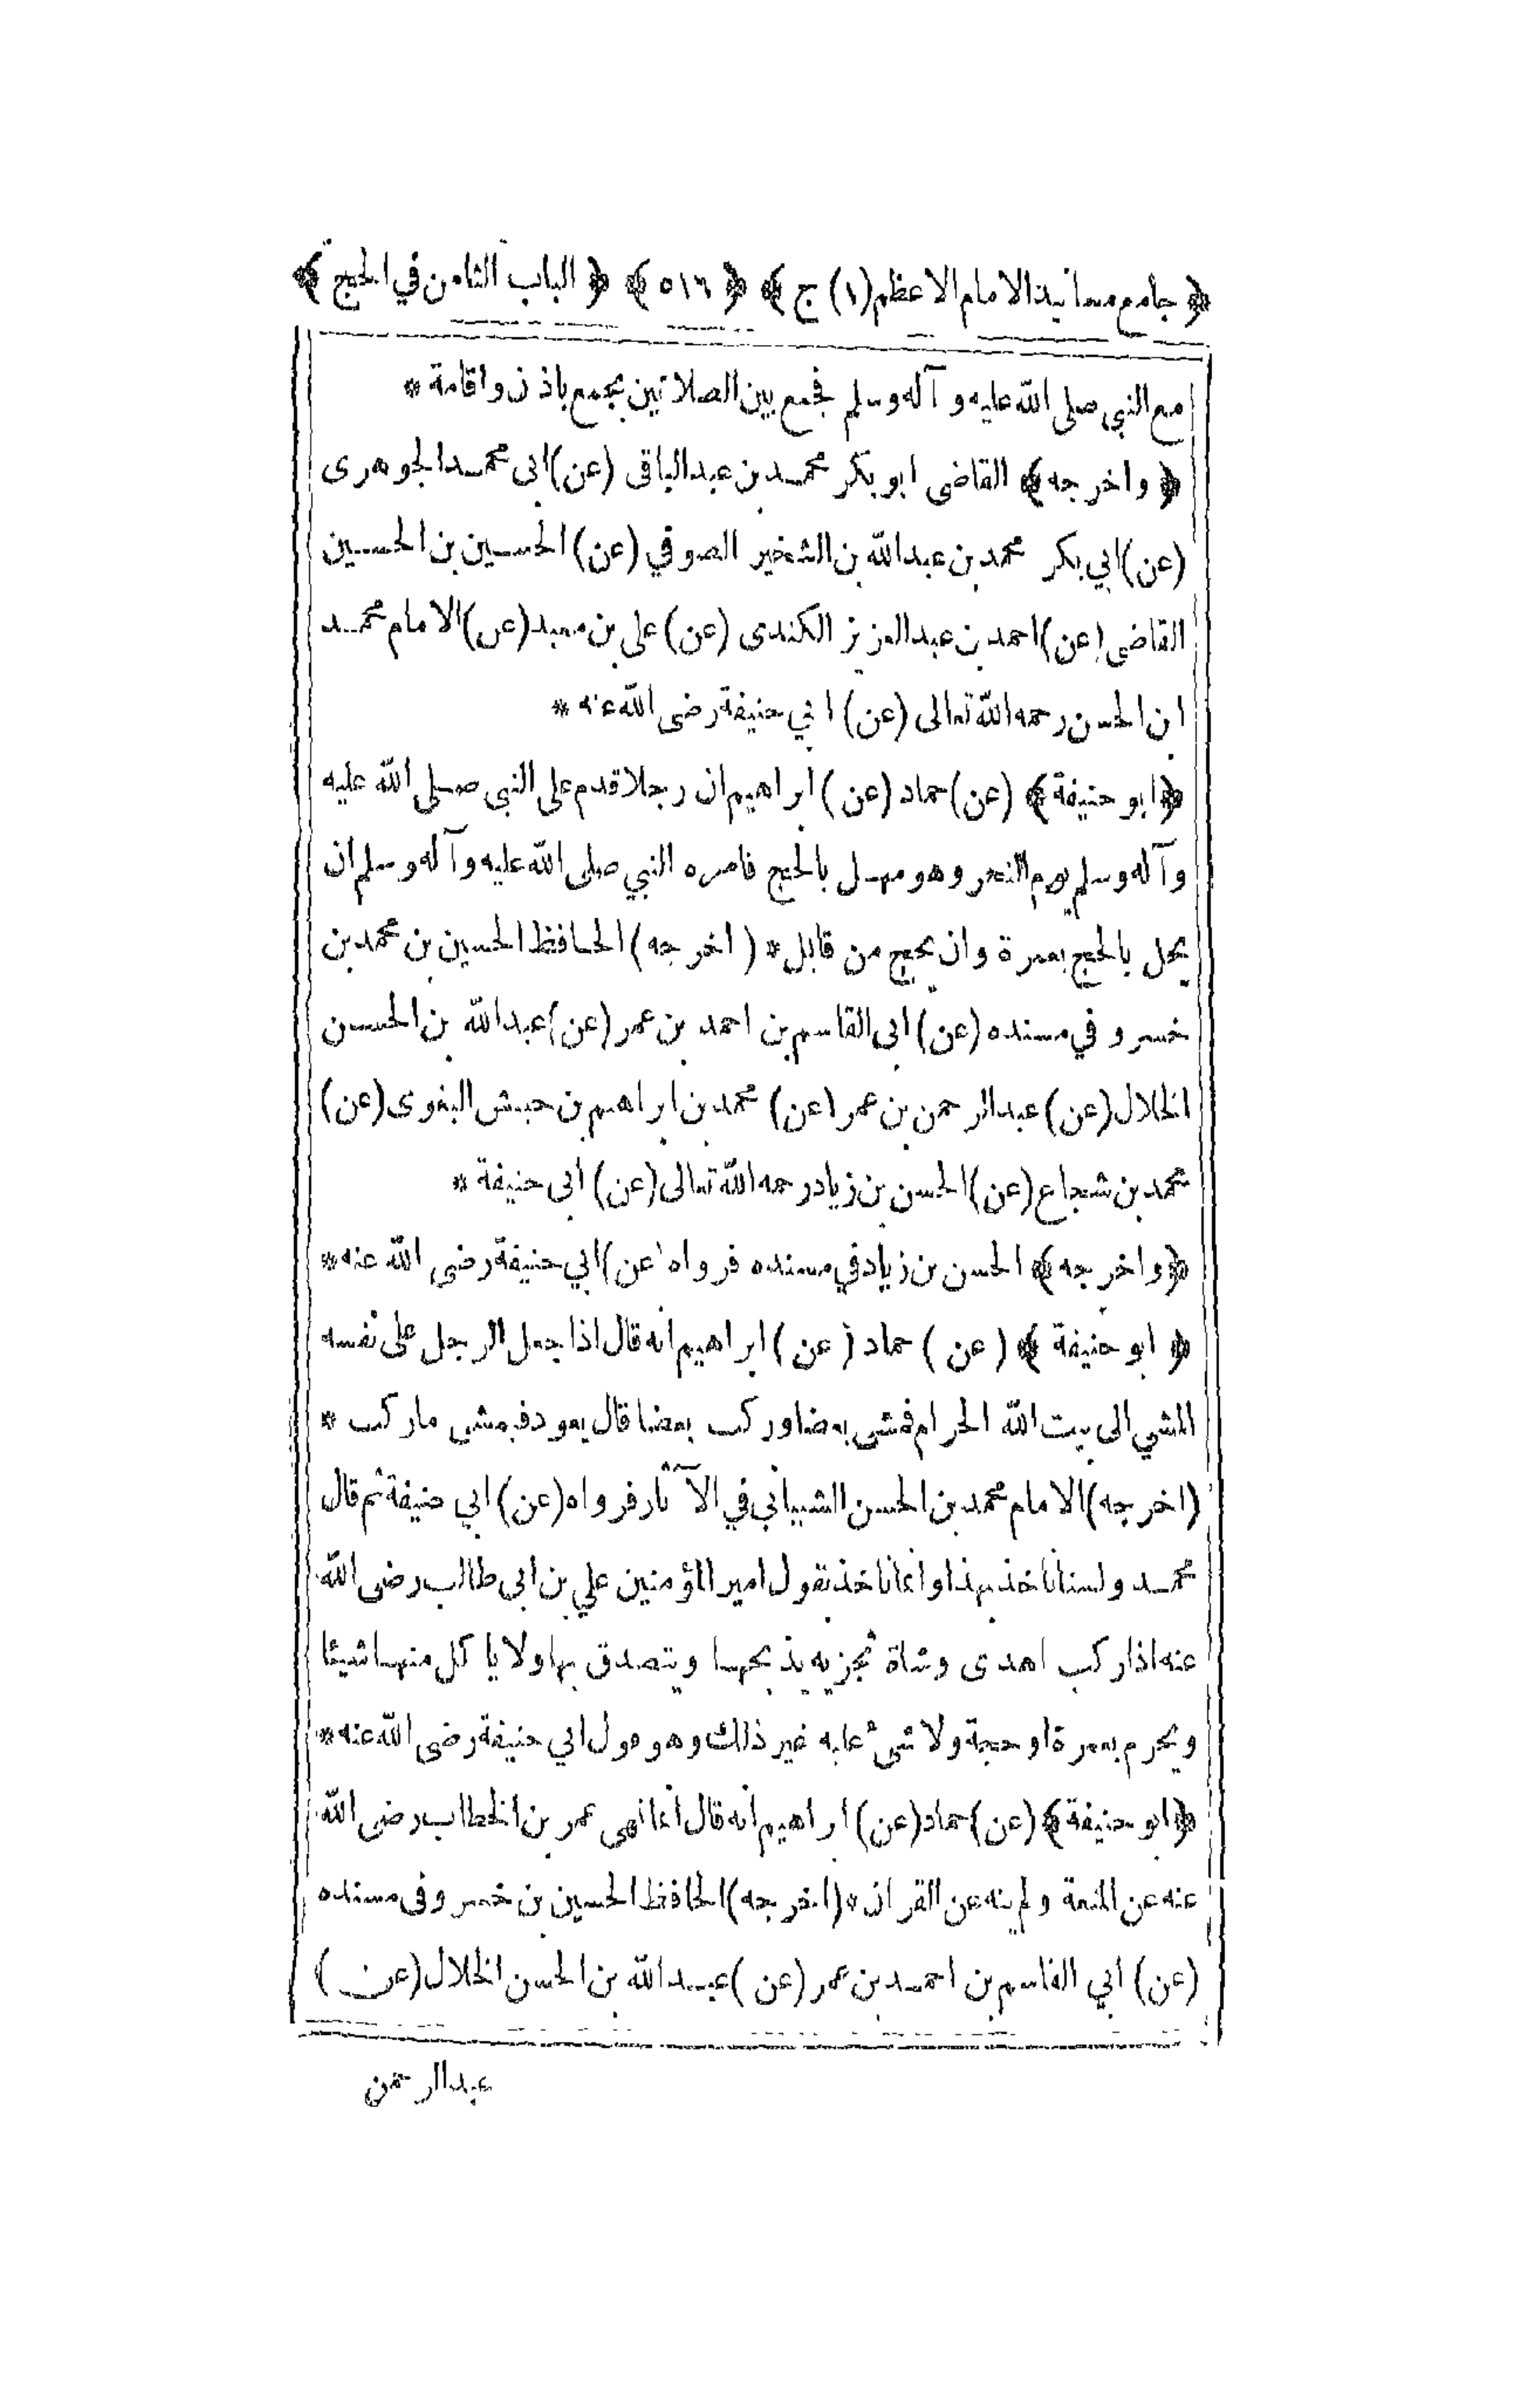 ﴿ جامع مسانيد الامام الاعظم (١) ج ﴾ ﴿ ٥١٦ ﴾ ﴿ الباب الثامن في الحج ﴾
مع النبي صلى الله عليه وآله وسلم فجمع بين الصلاتين بجمع باذان واقامة *
﴿ واخرجه ﴾ القاضى ابو بكر محمد بن عبد الباقى (عن) ابى محمد الجوهرى
(عن) ابي بكر محمد بن عبد الله بن الشخير الصوفي (عن) الحسين بن الحسين
القاضى (عن) احمد بن عبد العزيز الكندى (عن) على بن معبد (عن) الامام محمد
ابن الحسن رحمه الله تعالى (عن) ابي حنيفة رضى الله عنه *
﴿ ابو حنيفة ﴾ (عن) حماد (عن) ابراهيم ان رجلا قدم على النبي صلى الله عليه
وآله وسلم يوم النحر وهو مهل بالحج فامره النبي صلى الله عليه وآله وسلم ان
يحل بالحج بعمرة وان يحج من قابل * (اخرجه) الحافظ الحسين بن محمد بن
خسرو في مسنده (عن) ابى القاسم بن احمد بن عمر (عن) عبد الله بن الحسن
الخلال (عن) عبد الرحمن بن عمر (عن) محمد بن ابراهيم بن حبيش البغوى (عن)
محمد بن شجاع (عن) الحسن بن زياد رحمه الله تعالى (عن) ابى حنيفة *
﴿ واخرجه ﴾ الحسن بن زياد في مسنده فرواه (عن) ابي حنيفة رضى الله عنه *
﴿ ابو حنيفة ﴾ (عن) حماد (عن) ابراهيم انه قال اذا جعل الرجل على نفسه
المشي الى بيت الله الحرام فمشى بعضا وركب بعضا قال يعود فيمشى ماركب *
(اخرجه) الامام محمد بن الحسن الشيبانى في الآثار فرواه (عن) ابي حنيفة ثم قال
محمد ولسنا ناخذ بهذا وانما ناخذ بقول امير المؤمنين علي بن ابى طالب رضى الله
عنه اذا ركب اهدى وشاة تجزيه يذبحها ويتصدق بها ولا ياكل منها شيئا
ويحرم بعمرة او حجة ولا شىء عليه غير ذلك وهو قول ابي حنيفة رضى الله عنه *
﴿ ابو حنيفة ﴾ (عن) حماد (عن) ابراهيم انه قال انما نهى عمر بن الخطاب رضى الله
عنه عن المتعة ولم ينه عن القران * (اخرجه) الحافظ الحسين بن خسرو فى مسنده
(عن) ابي القاسم بن احمد بن عمر (عن) عبد الله بن الحسن الخلال (عن)
عبد الرحمن